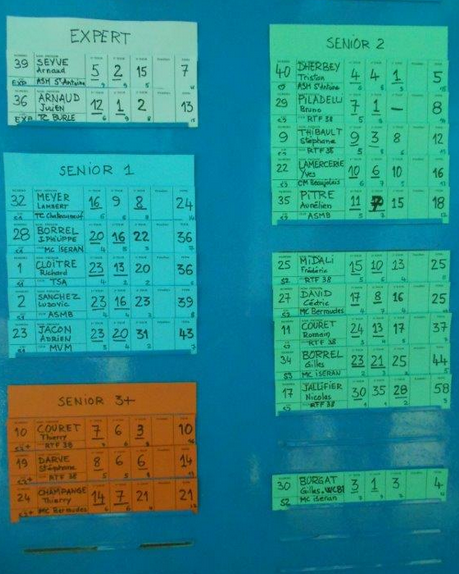 EXPERT
39 SEYVE 5 2 15 7
Arnaud
EXP ASM St Antoine
36 ARNAUD 12 1 2 13
Julien
EXP TC BURLE
SENIOR 1
32 MEYER 16 9 8 24
LAMBERT
TC Chateauneuf
28 BORREL 20 16 22 36
J. PHILIPPE
MC ISERAN
1 CLOÎTRE 23 13 20 36
Richard
TSA
2 SANCHEZ 23 16 23 39
Ludovic
ASMB
23 JACON 23 20 31 43
ADRIEN
MVM
SENIOR 3+
10 COURET 7 6 3 10
Thierry
S3+ RTF 38
19 DARVE 8 6 6 14
Stéphane
S3+ RTF 38
24 CHAMPANGE 14 7 21 21
Thierry
S3+ MC Bermudes
SENIOR 2
40 DHERBEY 4 4 1 5
Tristan
ASM St Antoine
29 PILADELLI 7 1 — 8
Bruno
RTF 38
9 THIBAULT 9 3 8 12
Stéphane
RTF 38
22 LAMERCERIE 10 6 10 16
Yves
CM Beaujolais
35 PITRE 11 7 15 18
Aurélien
ASMB
25 MIDALI 15 10 13 25
Frédéric
S2 RTF 38
27 DAVID 17 8 16 25
Cédric
MC Bermudes
11 COURET 24 13 17 37
Romain
RTF 38
34 BORREL 23 21 25 44
Gilles
MC ISERAN
17 JALLIFIER 30 35 28 58
Nicolas
RTF 38
30 BORGAT 3 1 3 4
Gilles. WCBT
S2 MC iseran